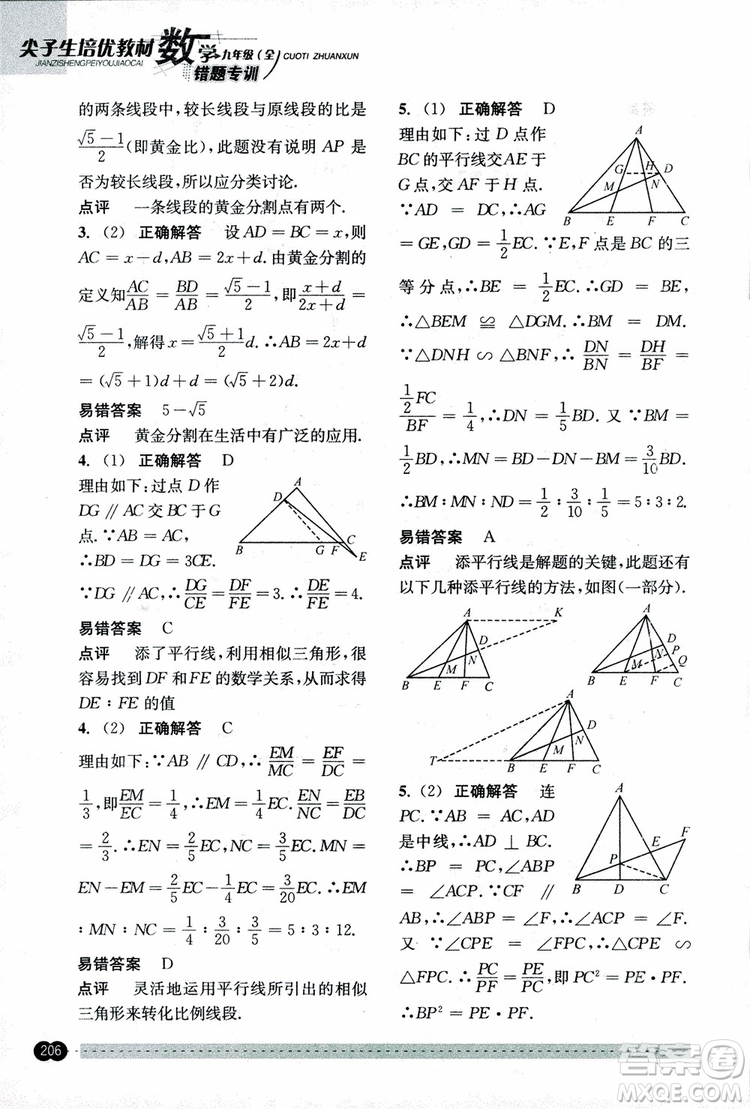 尖子生培优教材 数学 九年级(全) CUOTI ZHUANXUN
JIANZISHENGPEIYOUJIAOCAI 错题专训
的两条线段中，较长线段与原线段的比是
(√5-1)/2(即黄金比)，此题没有说明 AP 是
否为较长线段，所以应分类讨论.
点评 一条线段的黄金分割点有两个.
3. (2) 正确解答 设 AD=BC=x，则
AC=x-d，AB=2x+d. 由黄金分割的
定义知 AC/AB = BD/AB，即 (x+d)/(2x+d) =
(√5-1)/2，解得 x=(√5+1)/2 d. ∴AB=2x+d
=(√5+1)d+d=(√5+2)d.
易错答案 5-√5
点评 黄金分割在生活中有广泛的应用.
4. (1) 正确解答 D
理由如下：过点 D 作
DG∥AC 交 BC 于 G
点. ∵AB=AC，
∴BD=DG=3CE.
∵DG∥AC，∴DG/CE=DF/FE=3. ∴DE/FE=4.
A
D
B G F C
E
易错答案 C
点评 添了平行线，利用相似三角形，很
容易找到 DF 和 FE 的数学关系，从而求
DE∶FE 的值
4. (2) 正确解答 C
理由如下：∵AB∥CD，∴EM/MC=EF/DC=
1/3，即 EM/EC=1/4，∴EM=1/4 EC. EN/NC=EB/DC
=2/3. ∴EN=2/5 EC，NC=3/5 EC. MN=
EN-EM=2/5 EC-1/4 EC=3/20 EC. ∴EM
∶MN∶NC=1/4∶3/20∶3/5=5∶3∶12.
易错答案 D
点评 灵活地运用平行线所引出的相似
三角形来转化比例线段.
5. (1) 正确解答 D
理由如下：过 D 点作
BC 的平行线交 AE 于
G 点，交 AF 于 H 点.
∵AD=DC，∴AG
A
G H D
M N
B E F C
=GE，GD=1/2 EC. ∵E，F 点是 BC 的三
等分点，∴BE=1/2 EC. ∴GD=BE，
∴△BEM≌△DGM. ∴BM=DM.
∵△DNH∽△BNF，∴DN/BN=DH/BF=
(1/2 FC)/BF=1/4，∴DN=1/5 BD. 又∵BM=
1/2 BD，∴MN=DM-DN=3/10 BD.
∴BM∶MN∶ND=1/2∶3/10∶1/5=5∶3∶2.
易错答案 A
点评 添平行线是解题的关键，此题还有
以下几种添平行线的方法，如图(一部分).
A K
D
M N
B E F C
A
D
M N P
Q
B E F C
A
D
M N
T B E F C
5. (2) 正确解答 连
PC. ∵AB=AC，AD
是中线，∴AD⊥BC.
∴BP=PC，∠ABP
=∠ACP. ∵CF∥
A
F
E
P
B D C
AB，∴∠ABP=∠F，∴∠ACP=∠F.
又∵∠CPE=∠FPC，∴△CPE∽
△FPC. ∴PC/PF=PE/PC，即 PC²=PE·PF.
∵BP=PC，∴BP²=PE·PF.
206
答案圈
MXQE.COM